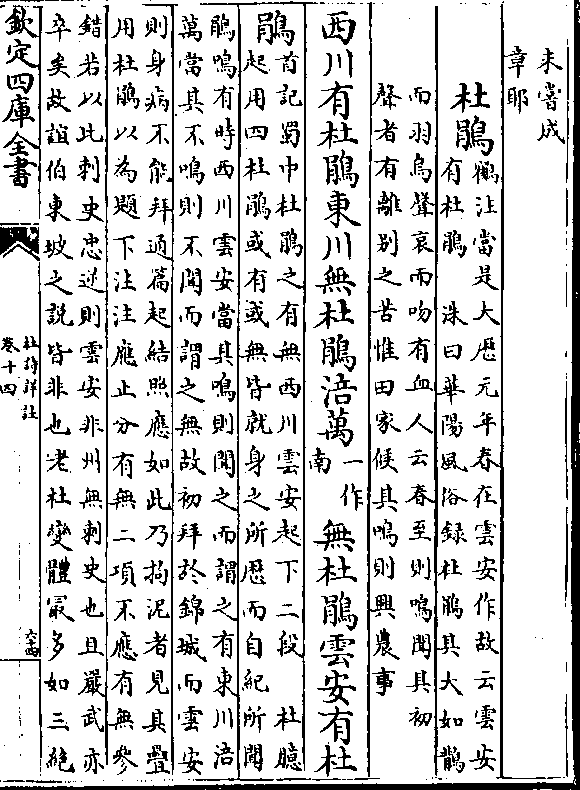 未嘗成
章耶
杜鵑
鶴注當是大歴元年春在雲安作故云雲安
有杜鵑 洙曰華陽風俗録杜鵑其大如鵲
而羽烏聲哀而吻有血人云春至則鳴聞其初
聲者有離别之苦惟田家候其鳴則興農事
西川有杜鵑東川無杜鵑涪萬一作南無杜鵑雲安有杜
鵑
首記蜀中杜鵑之有無西川雲安起下二段 杜臆
起用四杜鵑或有或無皆就身之所歴而自紀所聞
鵑鳴有時西川雲安當其鳴則聞之而謂之有東川涪
萬當其不鳴則不聞而謂之無故初拜於錦城而雲安
則身病不能拜通篇起結照應如此乃拘泥者見其疊
用杜鵑以為題下注注應止分有無二項不應有無參
錯若以此刺史忠逆則雲安非州無刺史也且嚴武亦
卒矣故誼伯東坡之説皆非也老杜變體最多如三絶
欽定四庫全書
杜詩詳註
卷十四